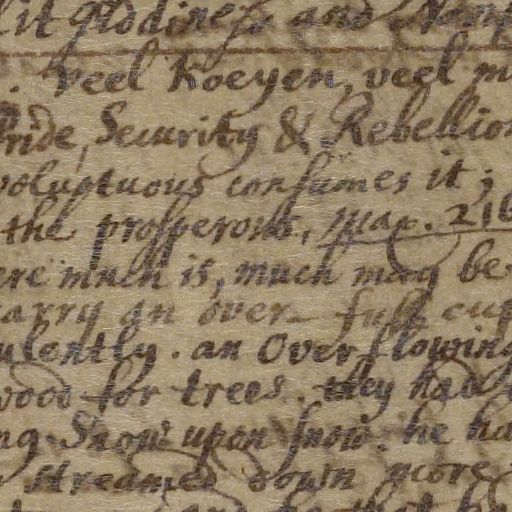 it Giddiness and
. Veel Koeyen, veel m
Pride, Security & Rebellion
voluptuous consumes it;
the prosperous, Max. 216
ere much is, much may be
arry an over-full cup
ulently. an Overflowing
wood for trees. they had
ng Snow upon snow. he ha
streamed down more